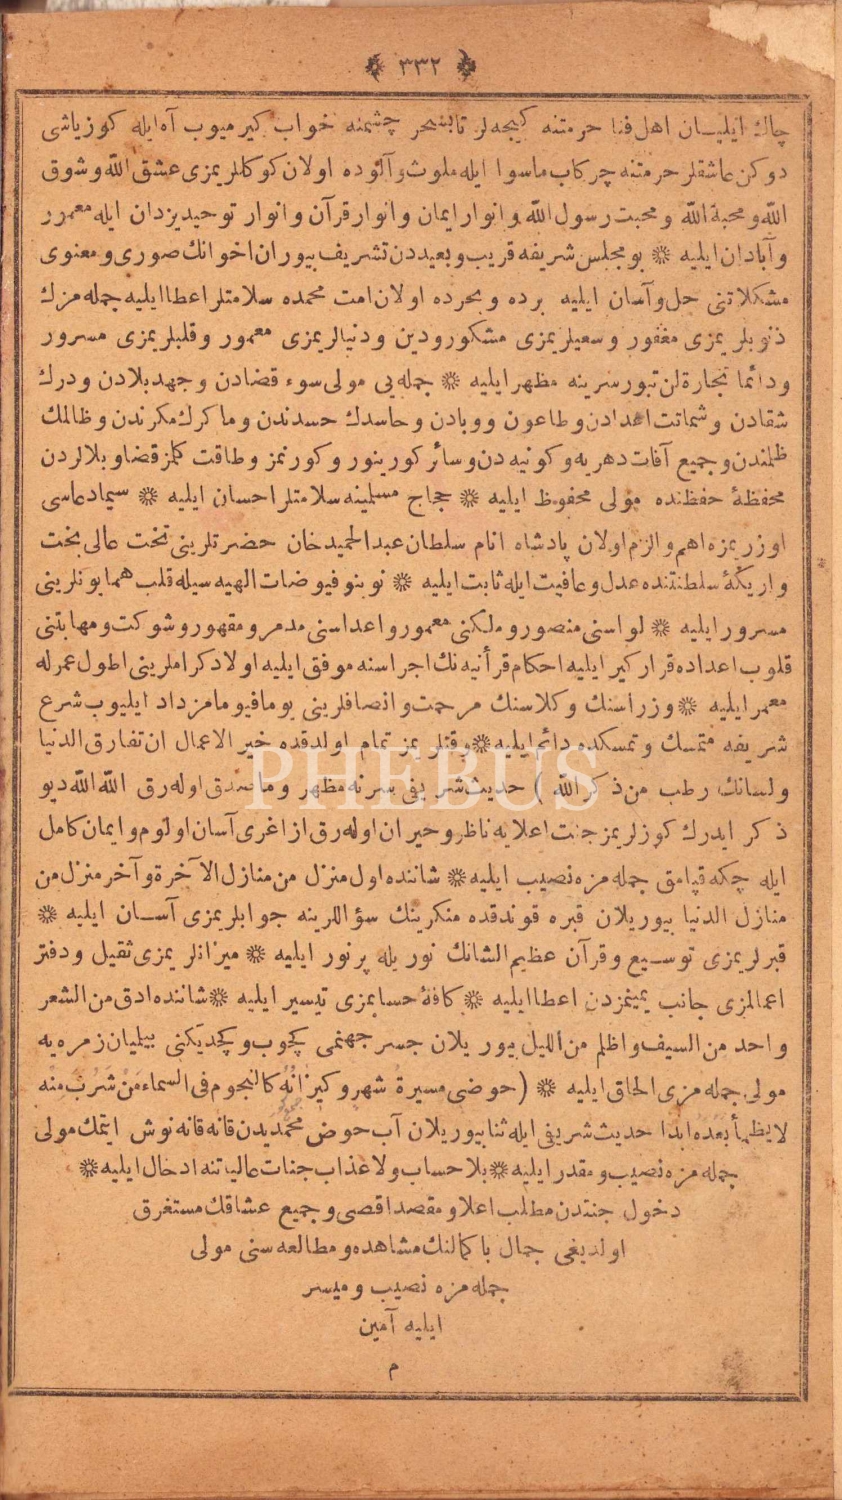 ٣٣٢
چاك ايليان اهل فنا حرمتنه كيجه‌لر تا بسحر چشمنه خواب كيرميوب آه ايله كوز ياشى
دوكن عاشقلر حرمتنه چركاب ماسوا ايله ملوث و آلوده اولان كوكللريمزى عشق الله و شوق
الله و محبة الله و محبت رسول الله و انوار ايمان و انوار قرآن و انوار توحيد يزدان ايله معمور
و آبادان ايليه ❊ بو مجلس شريفه قريب و بعيددن تشريف بيوران اخوانك صورى و معنوى
مشكلاتنى حل و آسان ايليه برده و بحرده اولان امت محمده سلامتلر اعطا ايليه جمله مزك
ذنوبلريمزى مغفور و سعيلريمزى مشكور و دين و دنيالريمزى معمور و قلبلريمزى مسرور
و دائما تجارة لن تبور سرينه مظهر ايليه ❊ جمله يى مولى سوء قضادن و جهد بلادن و درك
شقادن و شماتت اعدادن و طاعون و وبادن و حاسدك حسدندن و ماكرك مكرندن و ظالمك
ظلمندن و جميع آفات دهريه و كونيه دن و سائر كورينور و كورنمز و طاقت كلمز قضا و بلالردن
محفظهٔ حفظنده مولى محفوظ ايليه ❊ حجاج مسلمينه سلامتلر احسان ايليه ❊ سيما دعاسى
اوزريمزه اهم و الزم اولان پادشاه انام سلطان عبد الحميد خان حضرتلرينى تخت عالى بخت
و اريكهٔ سلطنتنده عدل و عافيت ايله ثابت ايليه ❊ نوبنو فيوضات الهيه سيله قلب همايونلرينى
مسرور ايليه ❊ لواسنى منصور و ملكنى معمور و اعداسنى مدمر و مقهور و شوكت و مهابتنى
قلوب اعداده قرار كير ايليه احكام قرأنيه نك اجراسنه موفق ايليه اولاد كراملرينى اطول عمرله
معمر ايليه ❊ وزراسنك وكلاسنك مرحمت و انصافلرينى يوما فيوما مزداد ايليوب شرع
شريفه متمسك و تمسكده دائم ايليه ❊ وقتلريمز تمام اولدقده خير الاعمال ان تفارق الدنيا
ولسانك رطب من ذكر الله ) حديث شريفى سرنه مظهر و ماصدق اوله رق الله الله ديو
ذكر ايدرك كوزلريمز جنت اعلايه ناظر و حيران اوله رق از اغرى آسان اولوم و ايمان كامل
ايله چكه قپامق جمله مزه نصيب ايليه ❊ شاننده اول منزل من منازل الآخرة و آخر منزل من
منازل الدنيا بيوريلان قبره قوندقده منكرينك سؤاللرينه جوابلريمزى آسان ايليه ❊
قبرلريمزى توسيع و قرآن عظيم الشانك نوريله پرنور ايليه ❊ ميزانلريمزى ثقيل و دفتر
اعمالمزى جانب يمينمزدن اعطا ايليه ❊ كافهٔ حسابمزى تيسير ايليه ❊ شاننده ادق من الشعر
و احد من السيف و اظلم من الليل بيوريلان جسر جهنمى كچوب و كچديكنى بيلميان زمره يه
مولى جمله مزى الحاق ايليه ❊ (حوضى مسيرة شهر و كيزانُه كالنجوم فى السماء مَنْ شَرِبَ مِنْه
لا يظمأ بَعْدَه ابدا حديث شريفى ايله ثنا بيوريلان آب حوض محمديدن قانه قانه نوش ايتمك مولى
جمله مزه نصيب و مقدر ايليه ❊ بلا حساب و لا عذاب جنات عالياتنه ادخال ايليه ❊
دخول جنتدن مطلب اعلا و مقصد اقصى و جميع عشاقك مستغرق
اولديغى جمال باكمالنك مشاهده و مطالعه سنى مولى
جمله مزه نصيب و ميسر
ايليه آمين
م
PHEBUS